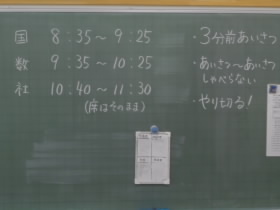 国 8:35～9:25
数 9:35～10:25
社 10:40～11:30
(席はそのまま)
・3分前あいさつ
・あいさつ～あいさつ
しゃべらない
・やり切る!